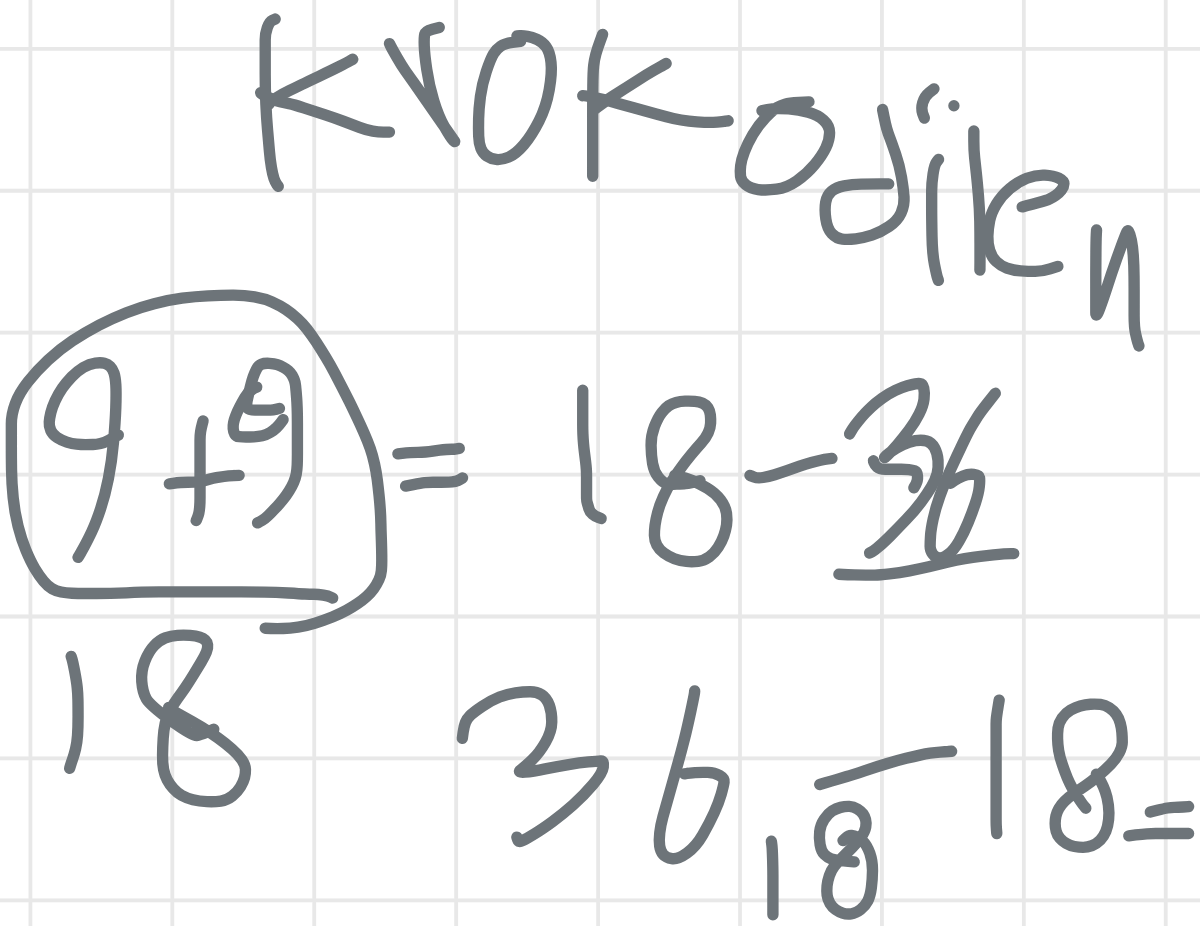 Krokodilen
9+9=18-36
18
36-18=
18